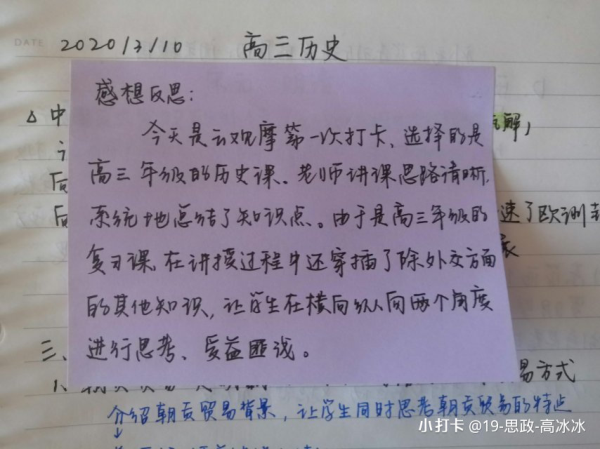 DATE
2020/3/10 高三历史
感想反思:
△中
解,
今天是云观摩第一次打卡、选择的是
高三年级的历史课、老师讲课思路清晰,
系统地总结了知识点。由于是高三年级的
速了欧洲封
复习课,在讲授过程中还穿插了除外交方面
的其他知识,让学生在横向纵向两个角度
进行思考、受益匪浅。
三、
易方式
介绍朝贡贸易背景,让学生同时思考朝贡贸易的特点
小打卡 @19-思政-高冰冰